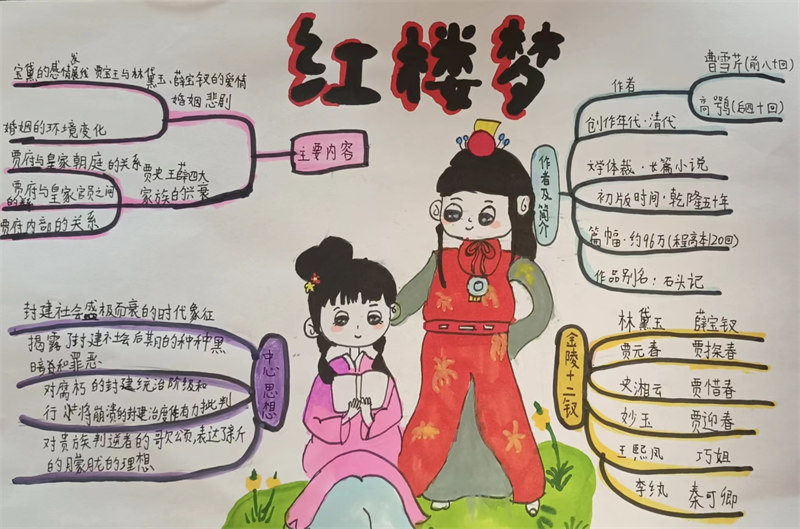 红楼梦
宝黛的感情发展线 贾宝玉与林黛玉、薛宝钗的爱情
婚姻 悲剧
婚姻的环境变化
主要内容
贾府与皇家朝庭的关系
贾史王薛四大
家族的兴衰
贾府与皇家官员之间
的
贾府内部的关系
作者及简介
作者
曹雪芹(前八十回)
高鹗(后四十回)
创作年代·清代
文学体裁·长篇小说
初版时间·乾隆五十年
篇幅·约96万(程高本120回)
作品别名：石头记
中心思想
封建社会盛极而衰的时代象征
揭露了封建社会后期的种种黑
暗和罪恶
对腐朽的封建统治阶级和
行将崩溃的封建治度作有力批判
对贵族判逆者的歌颂,表达了新
的朦胧的理想
金陵十二钗
林黛玉 薛宝钗
贾元春 贾探春
史湘云 贾惜春
妙玉 贾迎春
王熙凤 巧姐
李纨 秦可卿